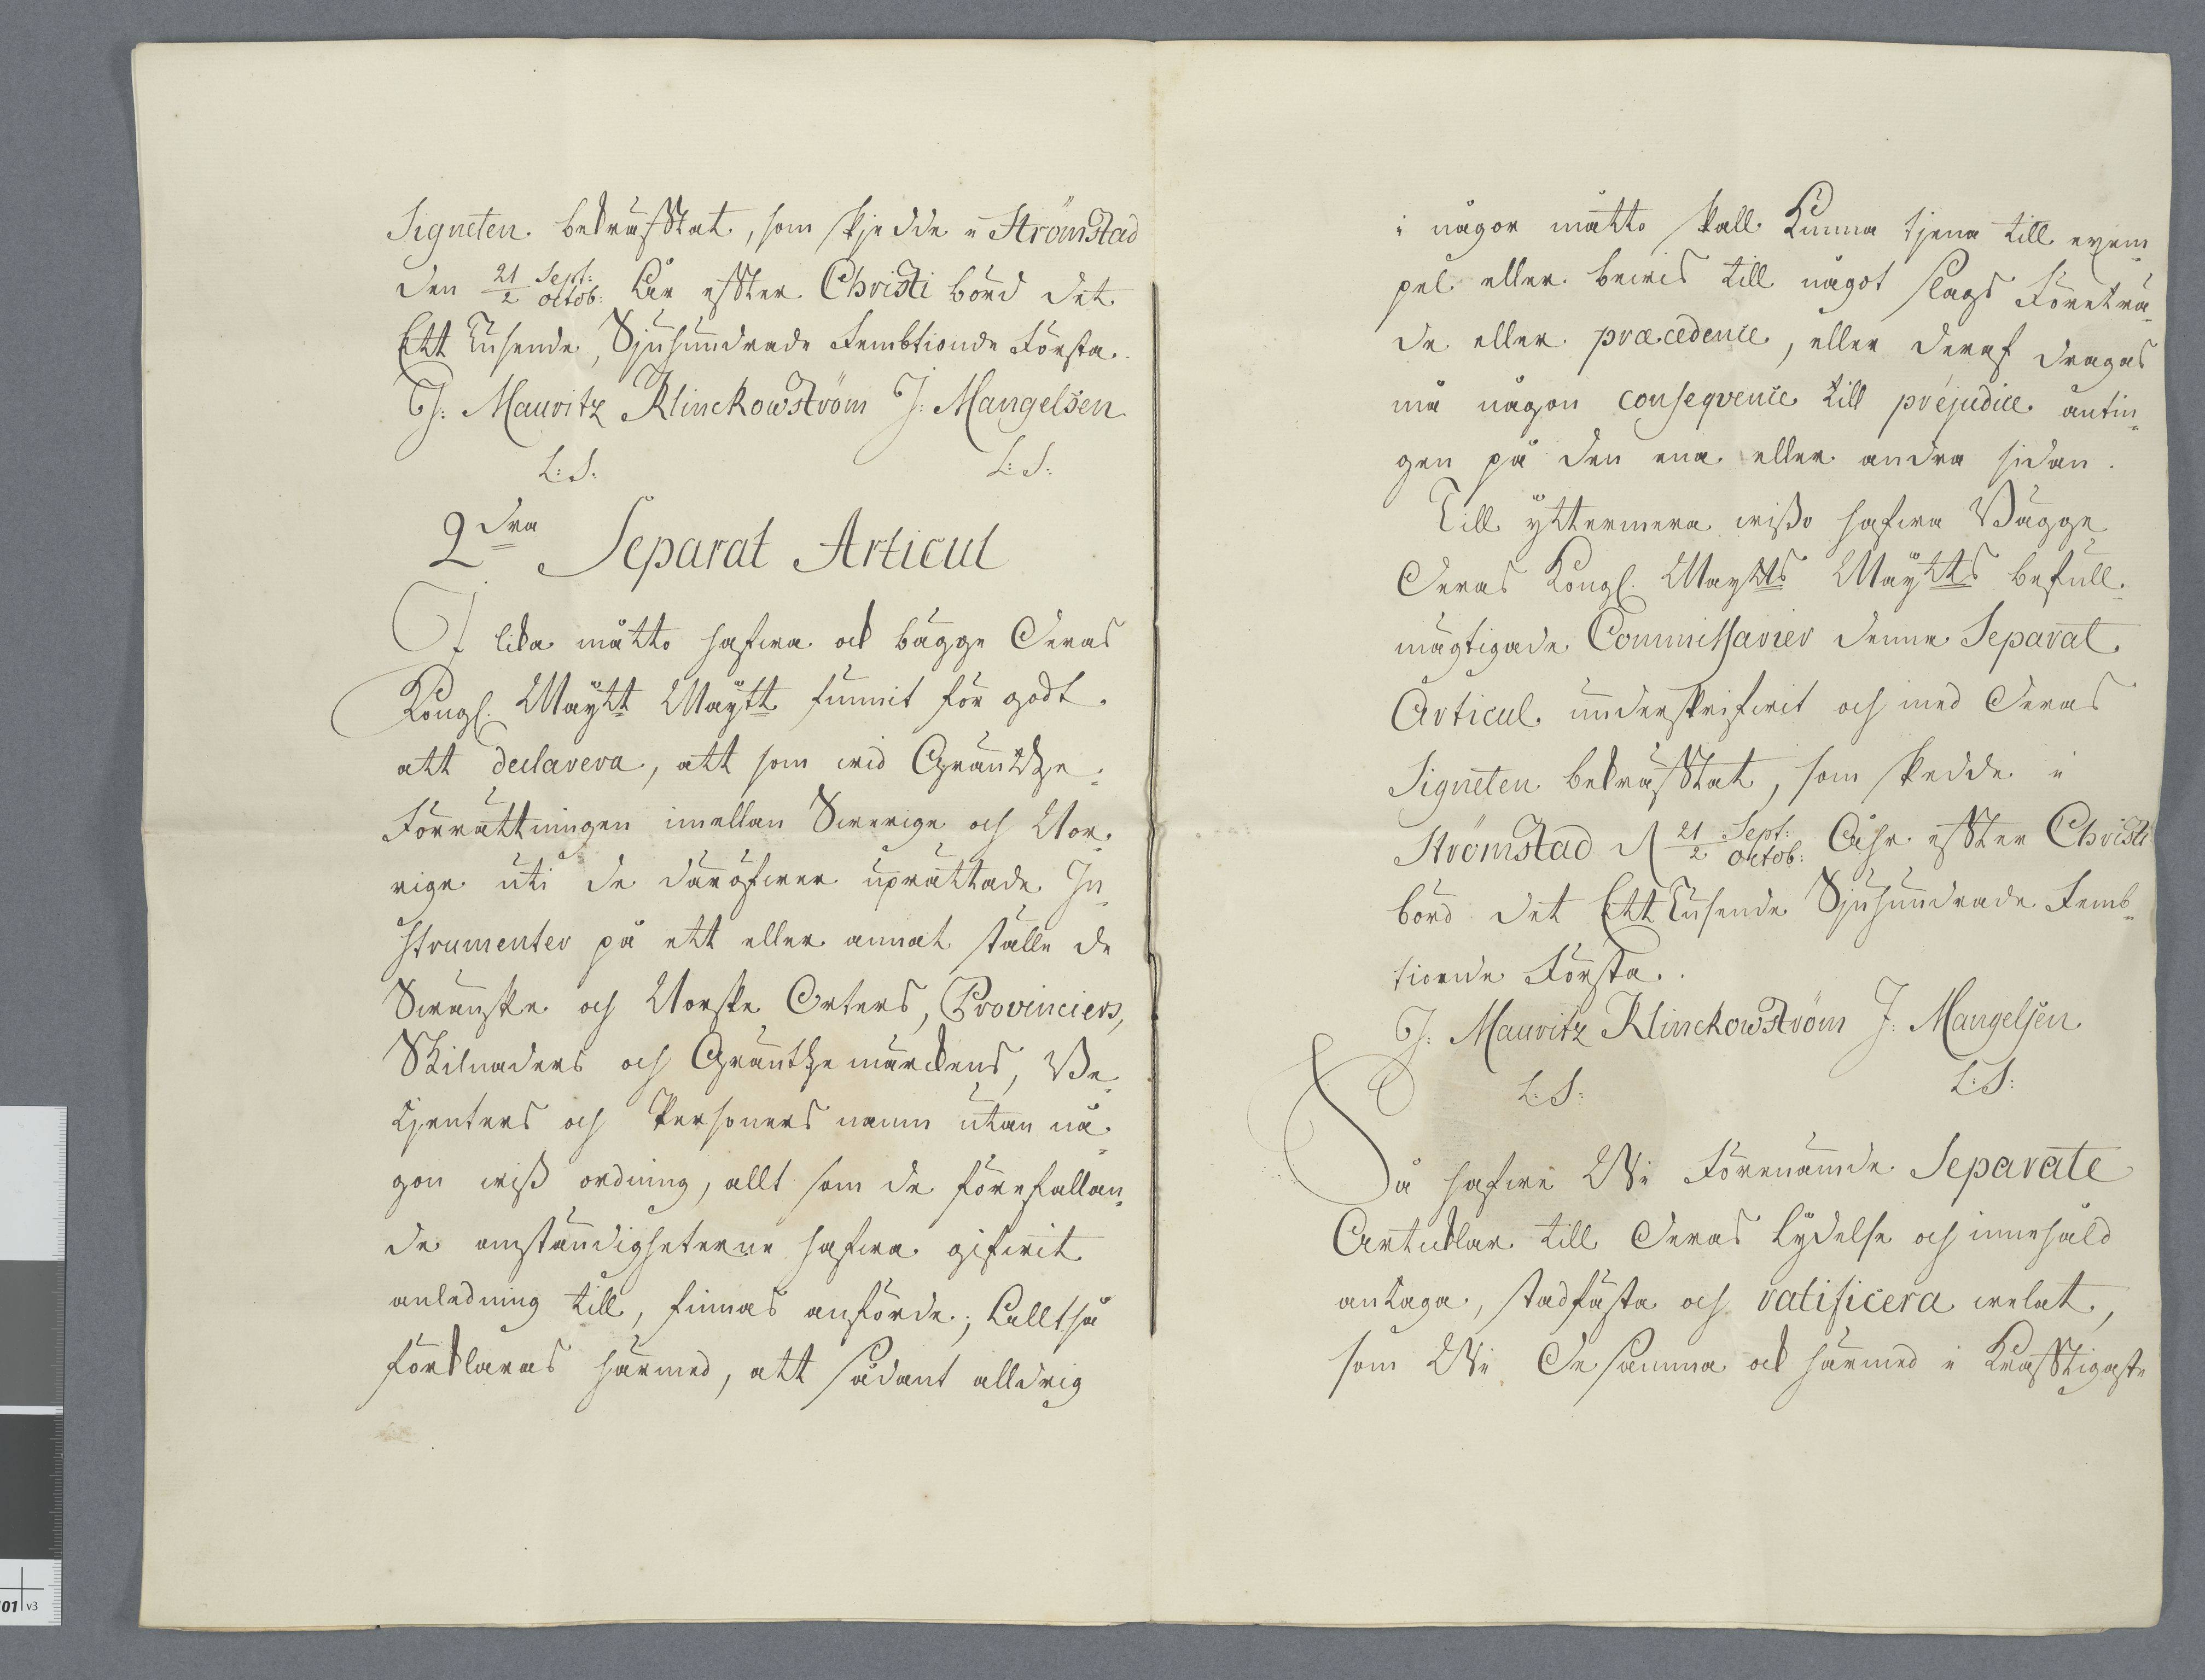 Signeten bekräfftat, som skjedde i Strömstad
den 21/2 Sept:/Octob: Åhr effter Christi börd det
Ett Tusende, Sjuhundrade Fembtionde Första.
J: Mauritz Klinckowström J: Mangelsen
L: S. L: S:
2dra Separat Articul
I lika måtto hafwa ock bägge Deras
Kongl. Maÿtt Maÿtt funnit för godt
att declarera, att som wid Gräntze-
Förrättningen imellan Swerige och Nor-
rige uti de däröfwer uprättade In-
strumenter på ett eller annat ställe de
Swänske och Norske Orters, Provinciers,
Skilnaders och Gräntzemärckens, Be-
tjenters och Personers namn utan nå-
gon wiß ordning, allt som de förefallan-
de omständigheterne hafwa gifwit
anledning till, finnas anförde; Alltså
förklaras härmed, att sådant alldrig
i någor måtto skall kunna tjena till exem-
pel eller bewis till något slags Företrä-
de eller præcedence, eller deraf dragas
må någon conseqvence till préjudice antin-
gen på den ena eller andra sidan.
Till yttermera wißo hafwa Bägge
Deras Kongl. Maytts Maÿtts befull-
mägtigade Commissarier denne Separat
Articul underskrifwit och med Deras
Signeten bekräfftat, som skedde i
Strömstad d 21/2 Sept:/Octob: Åhr effter Christi
börd det Ett Tusende Sjuhundrade Femb-
tionde Första.
J: Mauritz Klinckowström J: Mangelsen
L: S: L: S:
Så hafwe Wi Förenämnde Separate
Articklar till Deras lydelse och innehåld
antaga, stadfästa och ratificera welat,
som Wi De samma ock härmed i krafftigaste